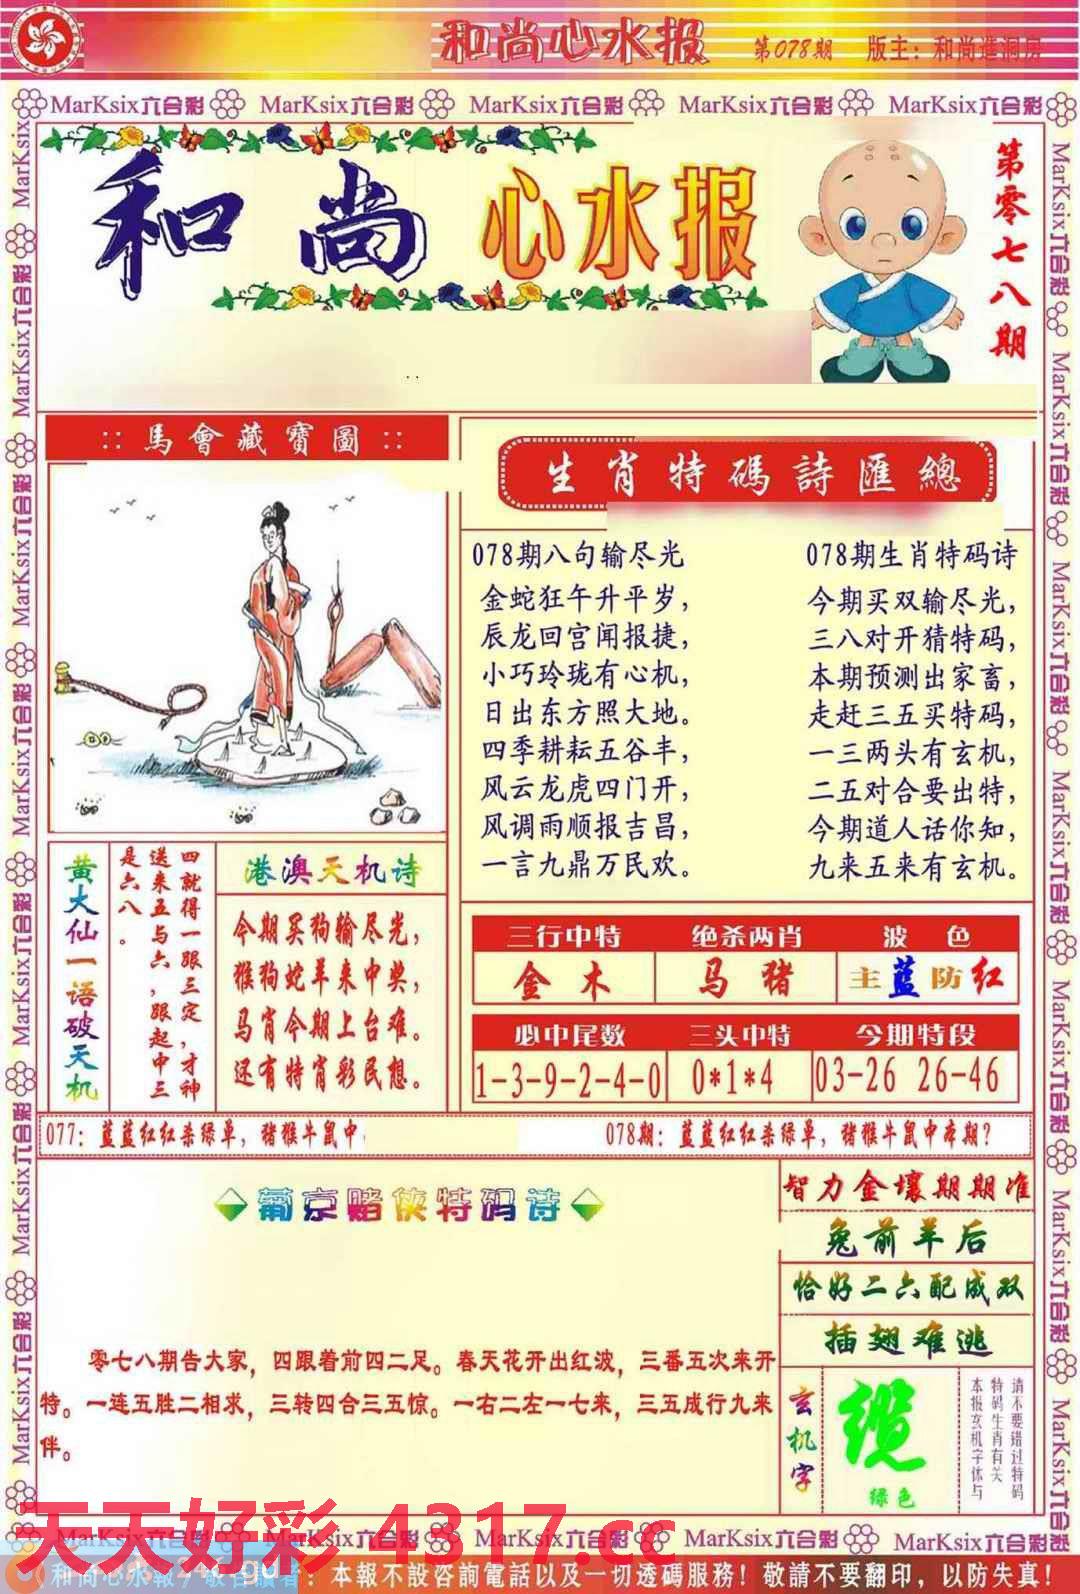 和尚心水报 第078期 版主：和尚進洞房
MarKsix六合彩 MarKsix六合彩 MarKsix六合彩 MarKsix六合彩 MarKsix六合彩
和尚 心水报
第零七八期
:: 馬會藏寶圖 ::
生肖特碼詩匯總
078期八句输尽光
金蛇狂午升平岁，
辰龙回宫闻报捷，
小巧玲珑有心机，
日出东方照大地。
四季耕耘五谷丰，
风云龙虎四门开，
风调雨顺报吉昌，
一言九鼎万民欢。
078期生肖特码诗
今期买双输尽光，
三八对开猜特码，
本期预测出家畜，
走赶三五买特码，
一三两头有玄机，
二五对合要出特，
今期道人话你知，
九来五来有玄机。
黄大仙一语破天机
四就得一跟三定，才神
送来五与六，跟起中三
是六八。
港澳天机诗
今期买狗输尽光，
猴狗蛇羊来中奖，
马肖今期上台难。
还有特肖彩民想。
三行中特 绝杀两肖 波色
金木 马猪 主蓝防红
必中尾数 三头中特 今期特段
1-3-9-2-4-0 0*1*4 03-26 26-46
077：蓝蓝红红杀绿单，猪猴牛鼠中
078期：蓝蓝红红杀绿单，猪猴牛鼠中本期？
葡京赌侠特码诗
零七八期告大家，四跟着前四二足。春天花开出红波，三番五次来开
特。一连五胜二相求，三转四合三五惊。一右二左一七来，三五成行九来
伴。
智力金壤期期准
兔前羊后
恰好二六配成双
插翅难逃
玄机字
缆
绿色
请不要错过特码
特码生肖有关
本报玄机字体与
天天好彩 4317.cc
MarKsix六合彩 MarKsix六合彩 MarKsix六合彩 MarKsix六合彩 MarKsix六合彩
和尚心水報 敬告讀者：本報不設咨詢電話以及一切透碼服務！敬請不要翻印，以防失真！